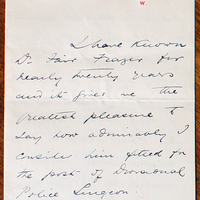 W.
I have known
Dr. Fair Frazer for
nearly twenty years
and it gives me the
greatest pleasure to
say how admirably I
consider him fitted for
the post of Divisional
Police Surgeon.